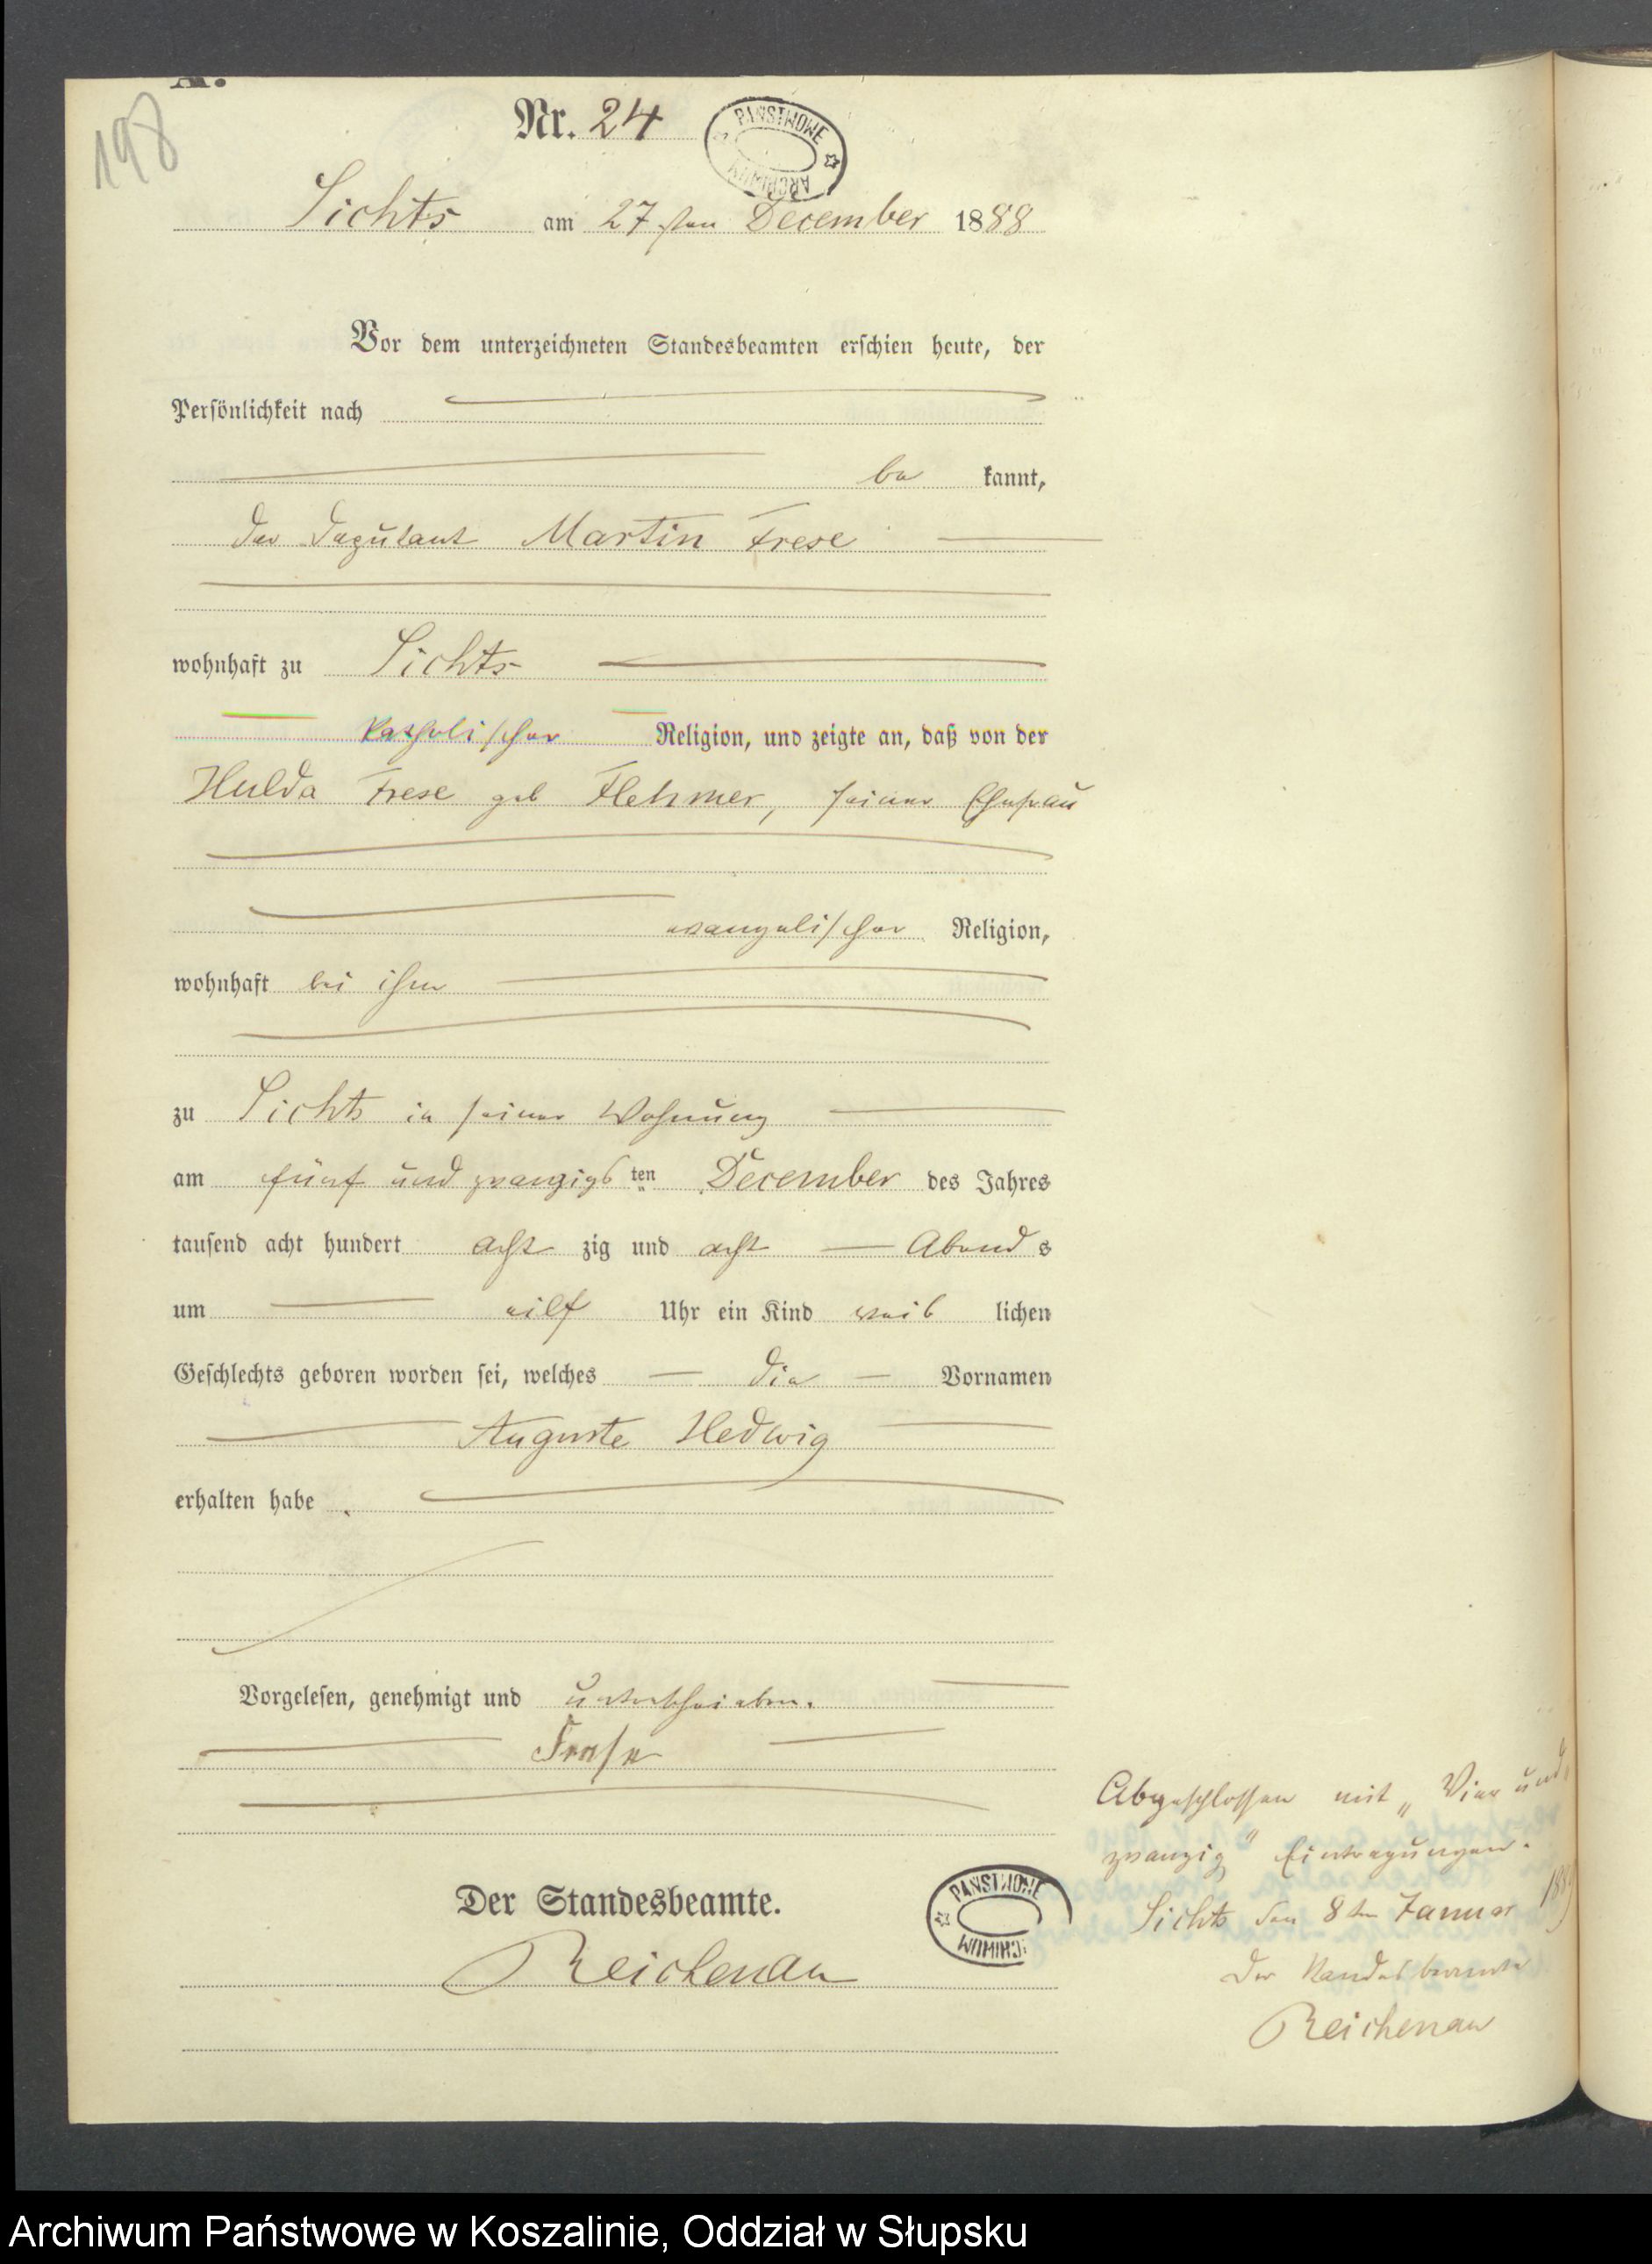 A.
198
Nr. 24
PAŃSTWOWE ARCHIWUM
Sichts am 27sten December 1888
Vor dem unterzeichneten Standesbeamten erschien heute, der
Persönlichkeit nach
be kannt,
der Deputant Martin Frese
wohnhaft zu Sichts
katholischer Religion, und zeigte an, daß von der
Hulda Frese geb Flehmer, seiner Ehefrau
evangelischer Religion,
wohnhaft bei ihm
zu Sichts in seiner Wohnung
am fünf und zwanzigsten December des Jahres
tausend acht hundert acht zig und acht Abends
um eilf Uhr ein Kind weib lichen
Geschlechts geboren worden sei, welches die Vornamen
Auguste Hedwig
erhalten habe.
Vorgelesen, genehmigt und unterschrieben.
Frese
Der Standesbeamte.
Reichenau
PAŃSTWOWE ARCHIWUM
Abgeschlossen mit „Vier und
zwanzig" Eintragungen.
Sichts den 8ten Januar 1889
Der Standesbeamte
Reichenau
Archiwum Państwowe w Koszalinie, Oddział w Słupsku